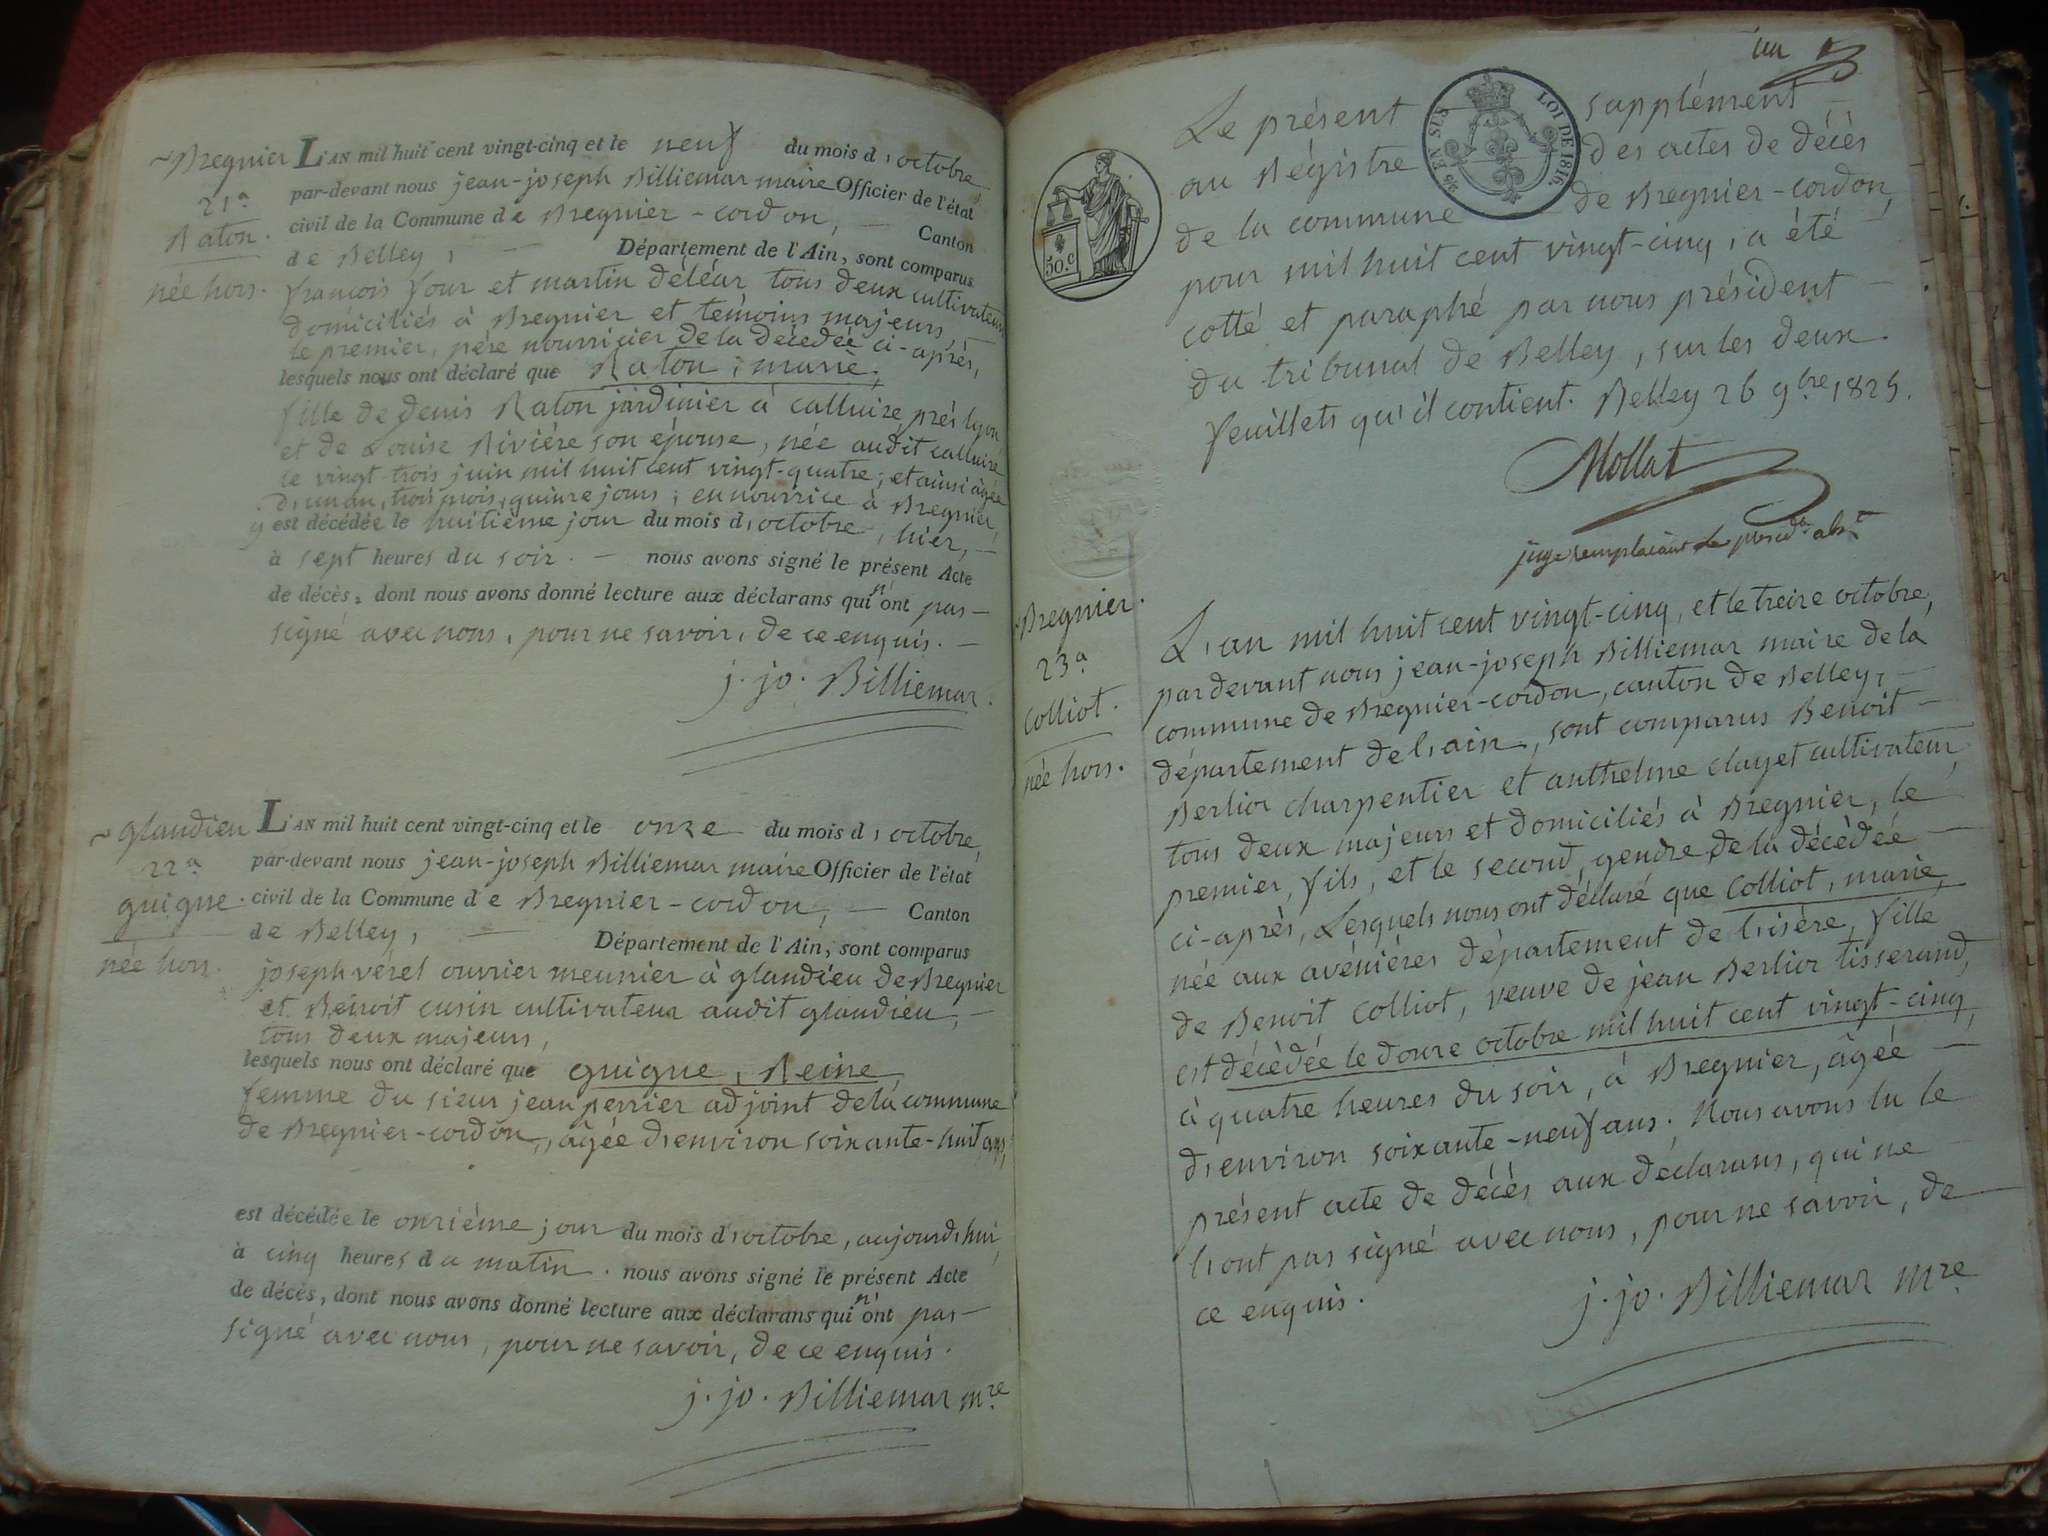 ~Bregnier
21.a
Raton.
née hors.
L'AN mil huit cent vingt-cinq et le neuf du mois d'octobre,
par-devant nous jean-joseph Billiemar maire Officier de l'état
civil de la Commune de Bregnier-cordon, — Canton
de Belley, — Département de l'Ain, sont comparus
françois Jour et martin déléar tous deux cultivateurs
domiciliés à Bregnier et témoins majeurs,
le premier, père nourricier de la décédée ci-après,
lesquels nous ont déclaré que Raton, marie,
fille de denis Raton jardinier à calluire, près lyon
et de Louise Rivière son épouse, née audit calluire
le vingt-trois juin mil huit cent vingt-quatre; et ainsi âgée
d'un an, trois mois, quinze jours; en nourrice à Bregnier,
y est décédée le huitième jour du mois d'octobre, hier, —
à sept heures du soir. — nous avons signé le présent Acte
de décès, dont nous avons donné lecture aux déclarans qui n'ont pas —
signé avec nous, pour ne savoir, de ce enquis. —
j. jo. Billiemar.
~glandieu
22.a
guigue.
née hors.
L'AN mil huit cent vingt-cinq et le onze du mois d'octobre,
par-devant nous jean-joseph Billiemar maire Officier de l'état
civil de la Commune de Bregnier-cordon, — Canton
de Belley, — Département de l'Ain, sont comparus
joseph vérel ouvrier meunier à glandieu de Bregnier
et Benoit cusin cultivateur audit glandieu, —
tous deux majeurs,
lesquels nous ont déclaré que guigue, Reine,
femme du sieur jean perrier adjoint de la commune
de Bregnier-cordon, âgée d'environ soixante-huit ans,
est décédée le onzième jour du mois d'octobre, aujourd'hui,
à cinq heures du matin. nous avons signé le présent Acte
de décès, dont nous avons donné lecture aux déclarans qui n'ont pas —
signé avec nous, pour ne savoir, de ce enquis.
j. jo. Billiemar mre
un
50.c
EN SUS
LOI DE 1816.
Le présent supplément —
au Régistre des actes de décès
de la commune — de Bregnier-cordon,
pour mil huit cent vingt-cinq, a été —
cotté et paraphé par nous président —
du tribunal de Belley, sur les deux
feuillets qu'il contient. Belley 26 9bre 1825.
Mollat
juge remplaçant le presidt abst
~Bregnier.
23.a
Colliot.
née hors.
L'an mil huit cent vingt-cinq, et le treize octobre,
pardevant nous jean-joseph Billiemar maire de la
commune de Bregnier-cordon, canton de Belley, —
département de l'ain, sont comparus Benoit —
Berlior charpentier et anthelme clayet cultivateur,
tous deux majeurs et domiciliés à Bregnier, le
premier, fils, et le second, gendre de la décèdée —
ci-après, Lesquels nous ont déclaré que Colliot, marie,
née aux avénières département de l'isère, fille
de Benoit Colliot, veuve de jean Berlior tisserand,
est décèdée le douze octobre mil huit cent vingt-cinq,
à quatre heures du soir, à Bregnier, âgée —
d'environ soixante-neuf ans. Nous avons lu le
présent acte de décès aux déclarans, qui ne
l'ont pas signé avec nous, pour ne savoir, de —
ce enquis.
j. jo. Billiemar mre